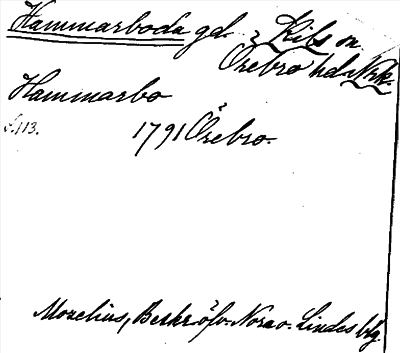 Hammarboda gd. Kils sn.
Örebro hd. Nrk.
Hammarbo
s. 113.
1791 Örebro.
Morelius, Beskr. öfv. Nora o. Lindes brlg.